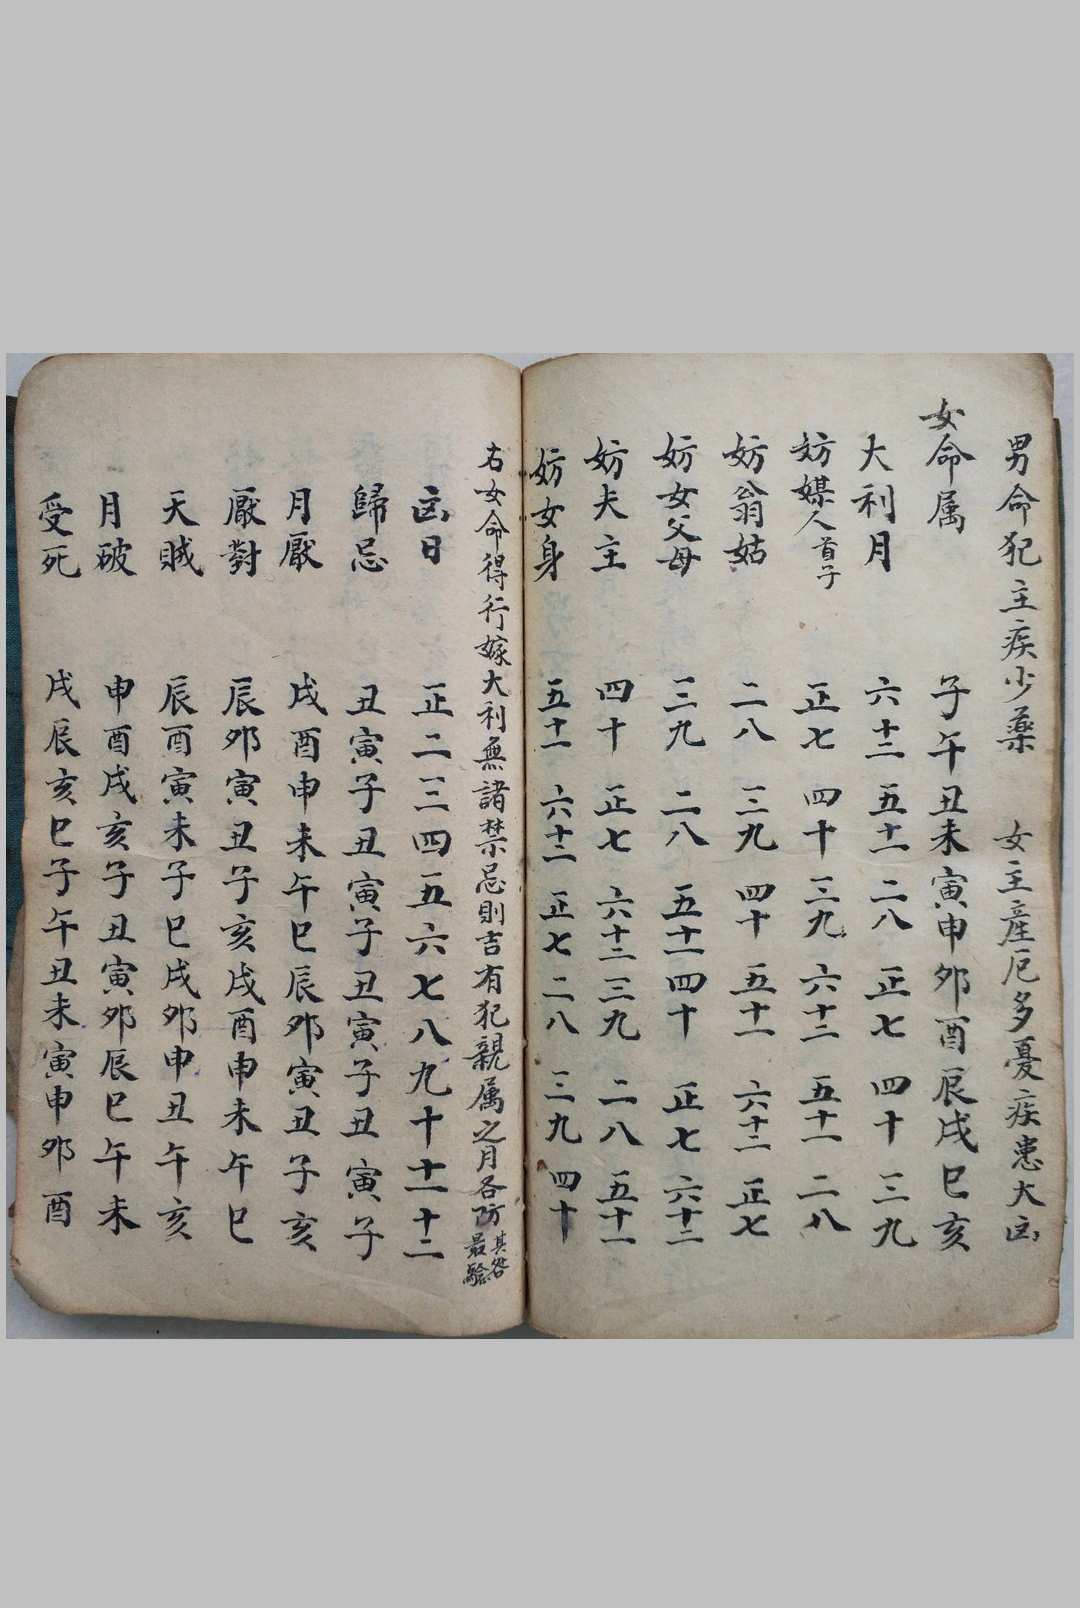 男命犯主疾少藥 女主産厄多憂疾患大凶
女命属 子午丑未寅申夘酉辰戌巳亥
大利月 六十二 五十一 二八 正七 四十 三九
妨媒人首子 正七 四十 三九 六十二 五十一 二八
妨翁姑 二八 三九 四十 五十一 六十二 正七
妨女父母 三九 二八 五十一 四十 正七 六十二
妨夫主 四十 正七 六十二 三九 二八 五十一
妨女身 五十一 六十二 正七 二八 三九 四十
右女命得行嫁大利無諸禁忌則吉有犯親属之月各防其咎最驗
凶日 正二三四五六七八九十十一十二
歸忌 丑寅子丑寅子丑寅子丑寅子
月厭 戌酉申未午巳辰夘寅丑子亥
厭對 辰夘寅丑子亥戌酉申未午巳
天賊 辰酉寅未子巳戌夘申丑午亥
月破 申酉戌亥子丑寅夘辰巳午未
受死 戌辰亥巳子午丑未寅申夘酉